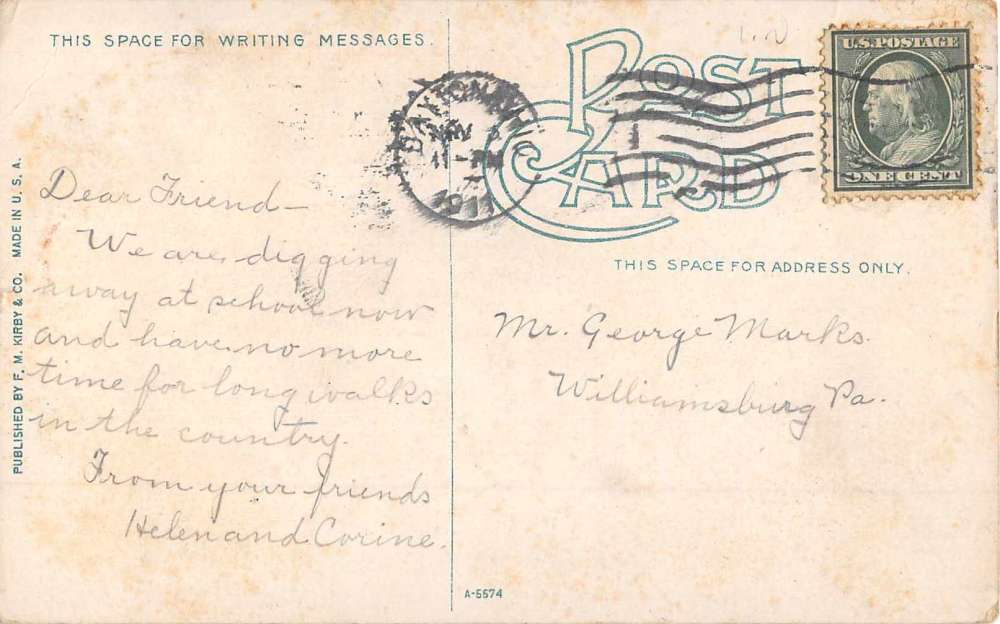 THIS SPACE FOR WRITING MESSAGES.
PUBLISHED BY F. M. KIRBY & CO. MADE IN U. S. A.
Dear Friend—
We are digging
away at school now
and have no more
time for long walks
in the country.
From your friends
Helen and Corine.
POST CARD
DAYTON, OHIO
NOV
1911
U.S. POSTAGE
ONE CENT
THIS SPACE FOR ADDRESS ONLY.
Mr. George Marks.
Williamsburg Pa.
A-5574